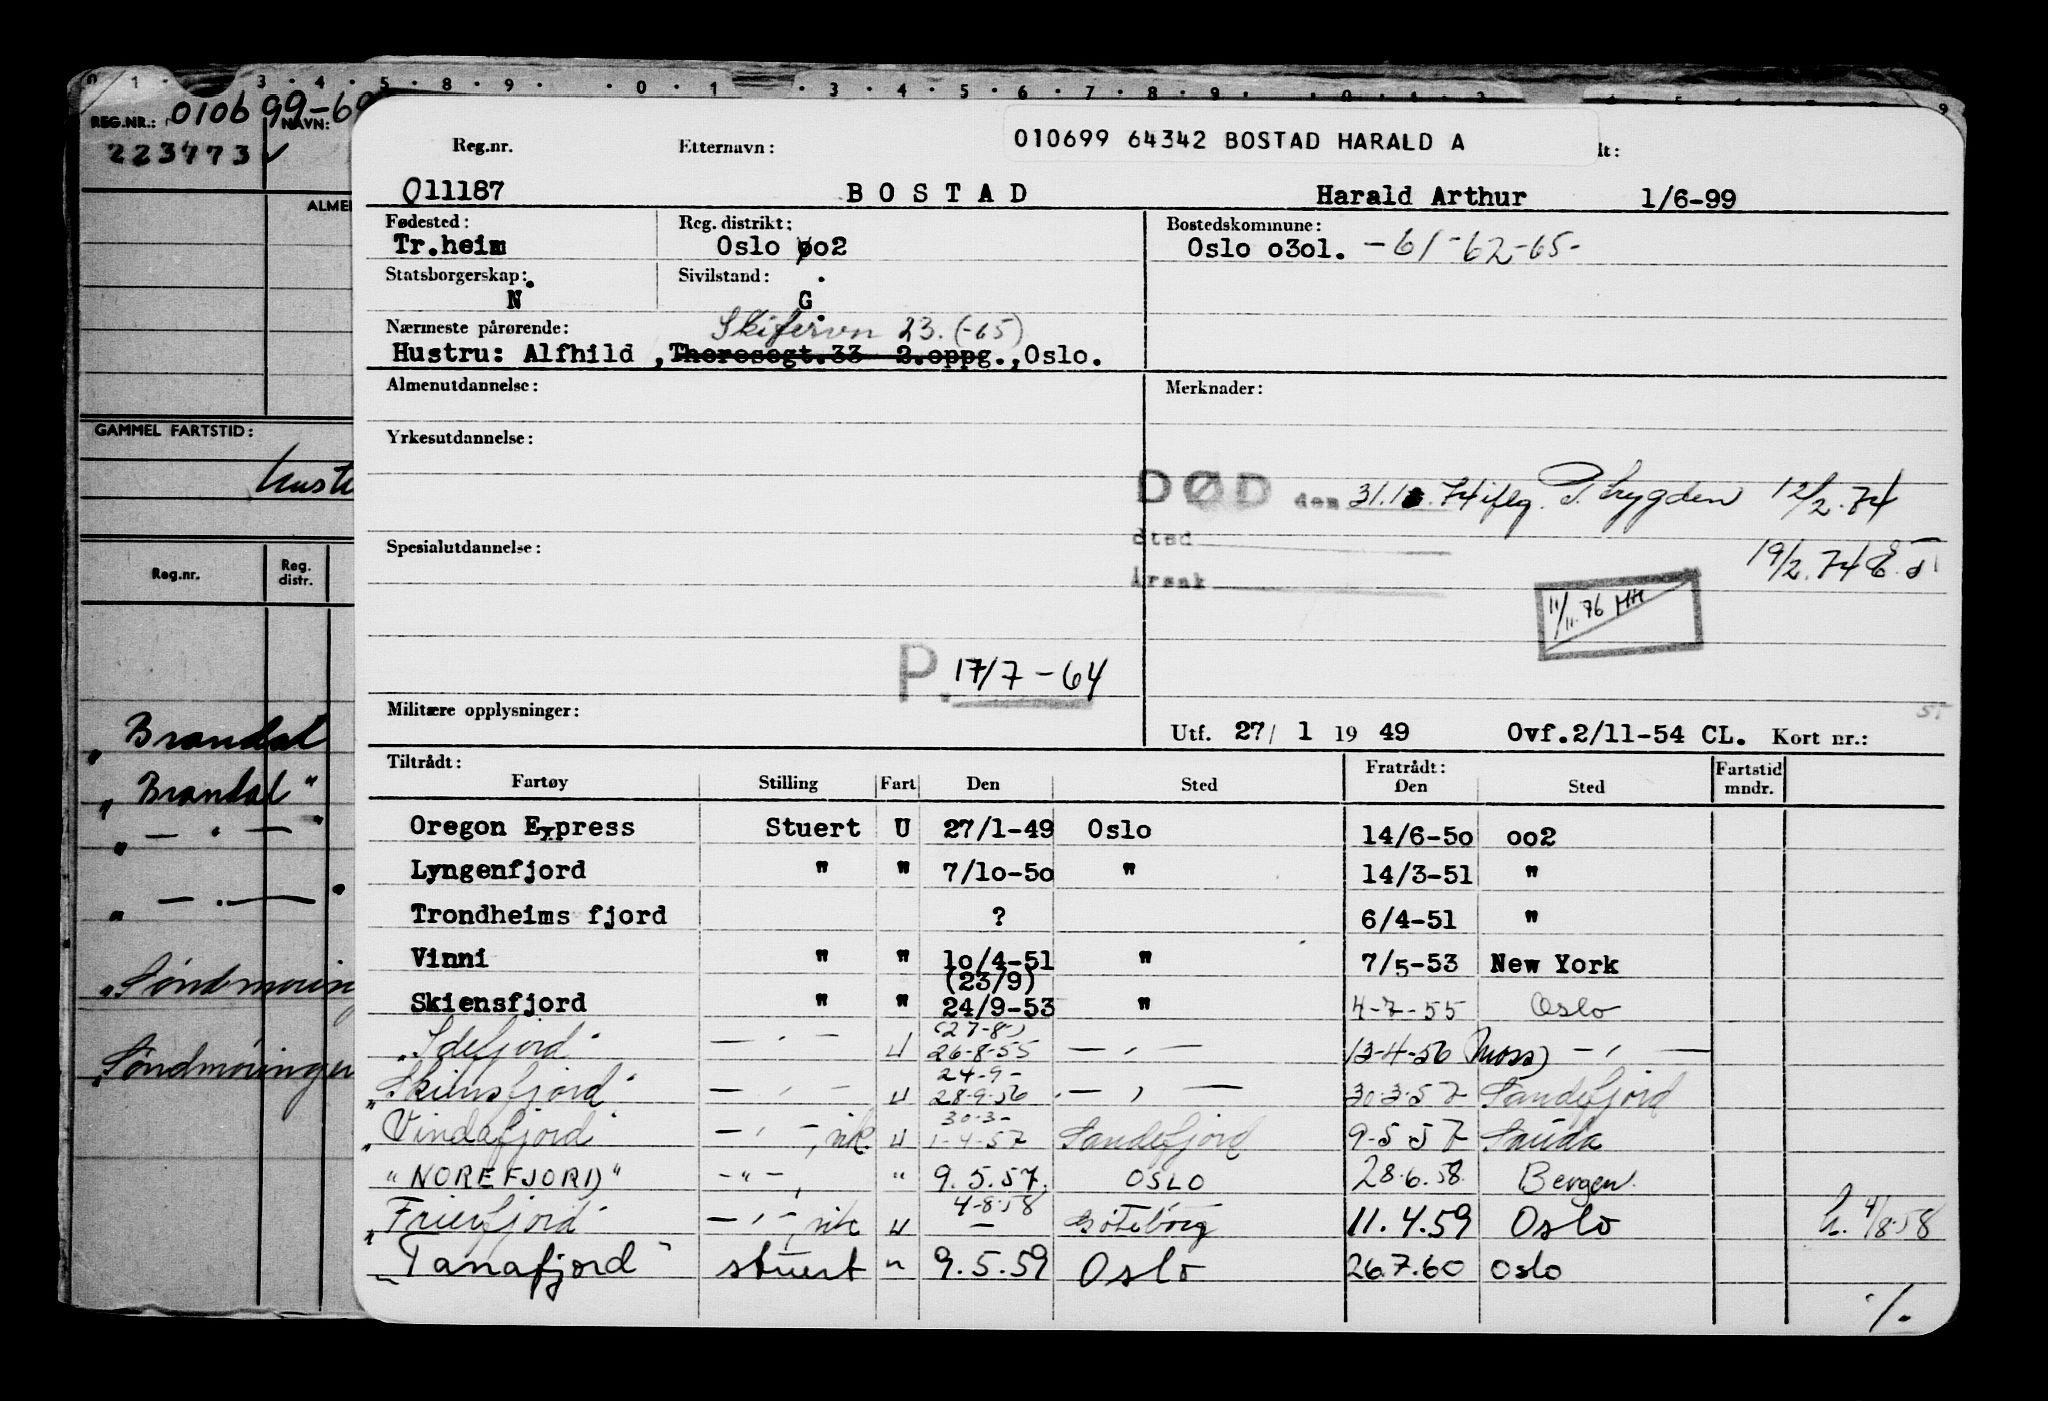 0 1 3 4 5 8 9 0 1 3 4 5 6 7 8 9
REG.NR.: 010699-6
NAVN:
223773 ✓
ALME
GAMMEL FARTSTID:
Reg.nr. Reg. distr.
" Brandal
" Brandal "
" — " — "
" — . — "
"Søndmørin
"Søndmøringen
010699 64342 BOSTAD HARALD A
Reg.nr. Etternavn: lt:
011187 BOSTAD Harald Arthur 1/6-99
Fødested: Reg. distrikt: Bostedskommune:
Tr.heim Oslo oo2 Oslo o3o1. -61-62-65-
Statsborgerskap: Sivilstand:
N G
Nærmeste pårørende: 23. (-65)
Hustru: Alfhild ,Theresegt.33 2.oppg.,Oslo.
Almenutdannelse: Merknader:
Yrkesutdannelse:
DØD den 31.1.74 iflg. P. trygden 12/2.74
Spesialutdannelse: sted
19/2.74
Årsak
11/11.76 HH
P. 17/7-64
Militære opplysninger:
Utf. 27/ 1 19 49 Ovf.2/11-54 CL. Kort nr.:
Tiltrådt: Fratrådt: Fartstid
Fartøy Stilling Fart Den Sted Den Sted mndr.
Oregon Express Stuert U 27/1-49 Oslo 14/6-5o oo2
Lyngenfjord " " 7/1o-5o " 14/3-51 "
Trondheims fjord ? 6/4-51 "
Vinni " " 1o/4-51 " 7/5-53 New York
(23/9)
Skiensfjord " " 24/9-53 " 4-7-55 Oslo
(27-8-)
"Idefjord" — " — U 26-8-55 — " — 13-4-56 (Moss) — " —
24-9-
"Skiensfjord" — " — U 28-9-56 — " — 30-3-57 Sandefjord
30-3-
"Vindafjord" — " —, vik U 1-4-57 Sandefjord 9-5-57 Sauda
"NOREFJORD" - " - " 9.5.57. OSLO 28.6.58. Bergen.
4-8-58
"Frierfjord" — " —, vik U — Göteborg 11.4.59 Oslo h. 4/8-58
"Tanafjord" stuert " 9.5.59 Oslo 26.7.60 Oslo
./.